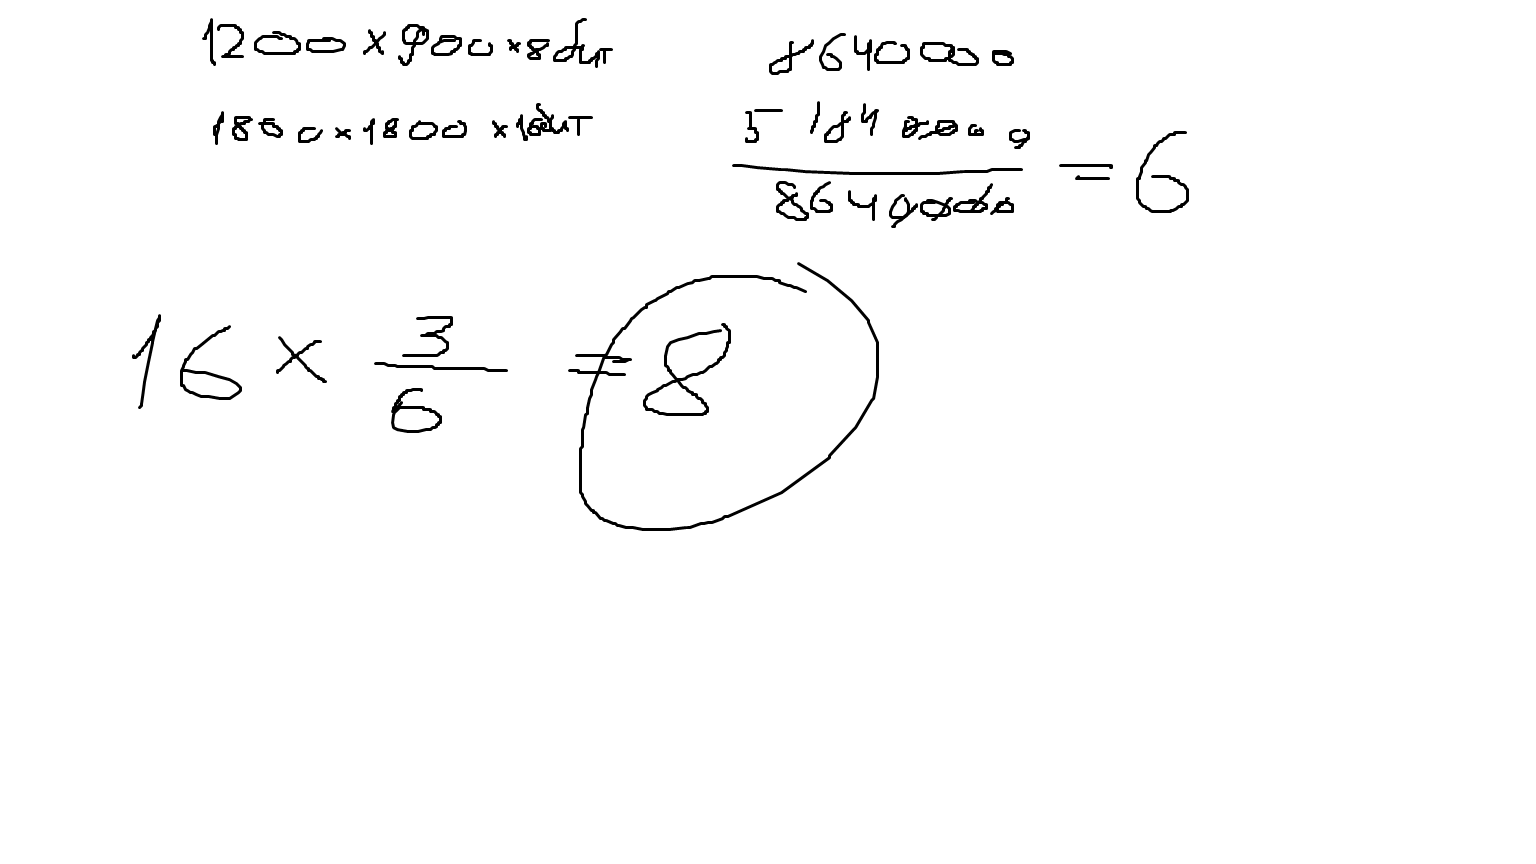 1200 × 900 × 8 бит
1800 × 1800 × 16 бит
8640000
51840000
8640000
= 6
16 × 3/6 = 8